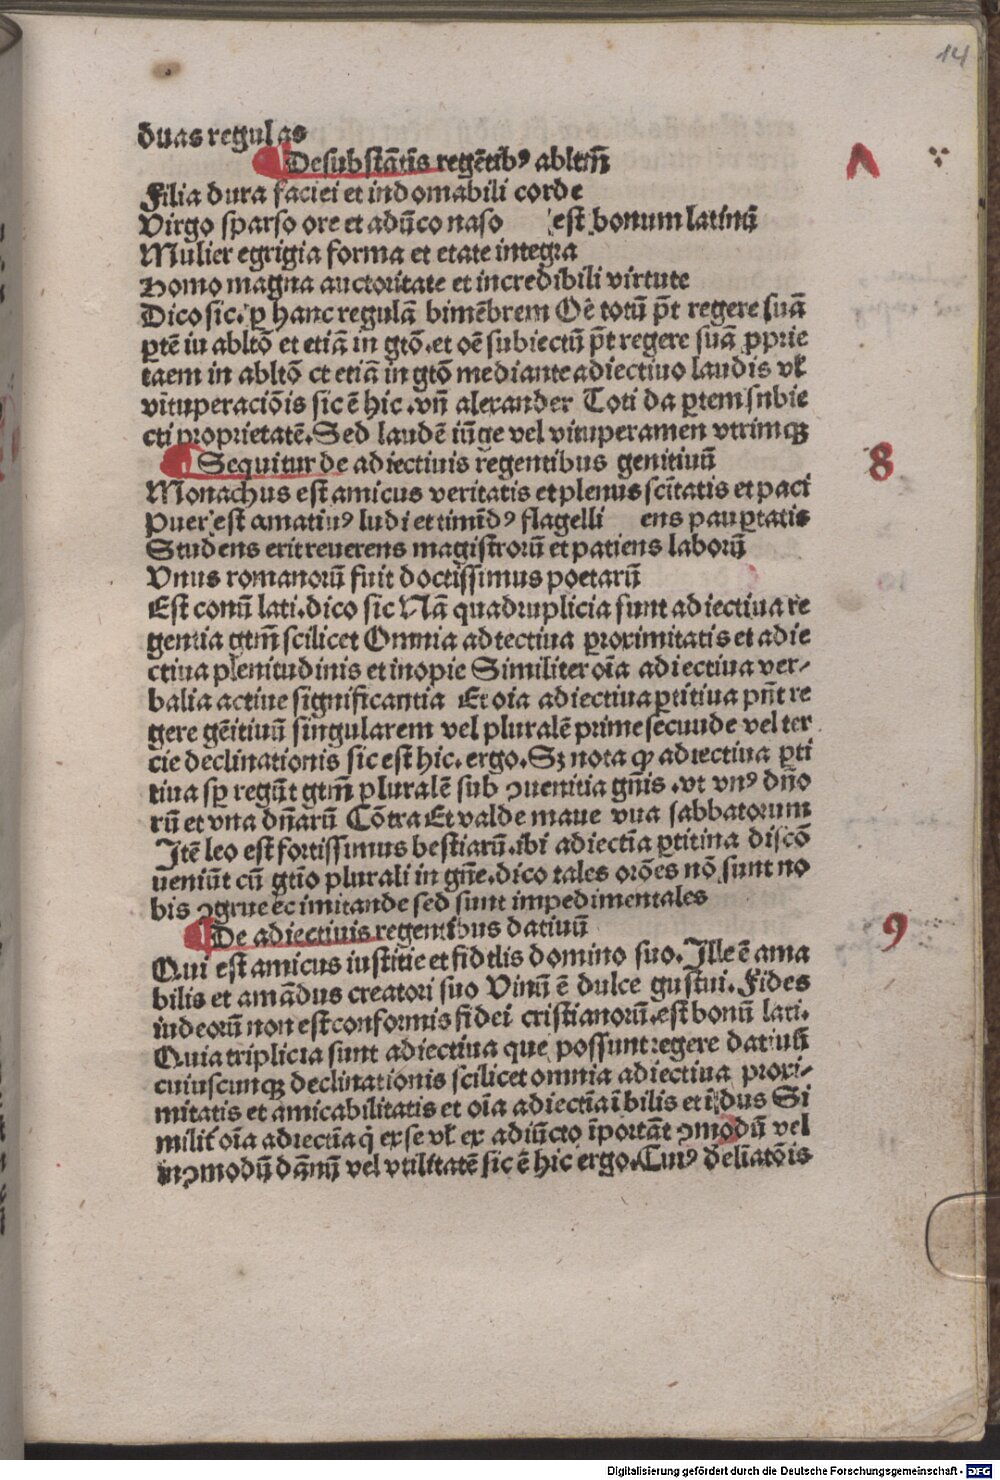 14
duas regulas
Desubstātis regētibꝰ abltm̄
Filia dura faciei et indomabili corde
Virgo sparso ore et adūco naso est bonum latinū
Mulier egrigia forma et etate integra
Homo magna auctoritate et incredibili virtute
Dico sic. ꝑ hanc regulā bimēbrem Oē totū pn̄t regere suā
ꝑtē in abltō et etiā in gtō. et oē subiectū pn̄t regere suā ꝓprie
taem in abltō et etiā in gtō mediante adiectiuo laudis vƚ
vituperaciōis sic ē hic. vn̄ alexander Toti da ꝑtem subie
cti proprietatē. Sed laudē iūge vel vituperamen vtrimqꝫ
Sequitur de adiectiuis regentibus genitiuū
Monachus est amicus veritatis et plenus scītatis et paci
Puer est amatiuꝰ ludi et timidꝰ flagelli ens pauꝑtatis
Studens erit reuerens magistrorū et patiens laborū
Vnus romanorū fuit doctissimus poetarū
Est conū lati. dico sic Nā quadruplicia sunt adiectiua re
gentia gtm̄ scilicet Omnia adtectiua ꝓroximitatis et adie
ctiua plenitudinis et inopie Similiter oīa adiectiua ver⸗
balia actiue significantia Et oia adiectiua ꝑtitiua pn̄t re
gere gēitiuū singularem vel pluralē prime secunde vel ter
cie declinationis sic est hic. ergo. Sꝫ nota ꝙ adiectiua ꝑti
tiua sꝑ regūt gtm̄ pluralē sub ꝯuenitia gn̄is. vt vnꝰ dn̄o
rū et vna dn̄arū Cōtra Et valde mane vna sabbatorum
Itē leo est fortissimus bestiarū. ibi adiectīa ꝑtitina discō
ueniūt cū gtīo plurali in gn̄e. dico tales orōes nō sunt no
bis ꝯgrue ec imitande sed sunt impedimentales
De adiectiuis regentibus datiuū
Qui est amicus iustitie et fidelis domino suo. Ille ē ama
bilis et amādus creatori suo Vinū ē dulce gustui. Fides
iudeorū non est conformis fidei cristianorū. est bonū lati.
Quia triplicia sunt adiectiua que possunt regere datiuū
cuiuscunqꝫ declinationis scilicet omnia adiectiua proxi⸗
mitatis et amicabilitatis et oīa adiectīa ī bilis et ī dus Si
milit̄ oīa adiectīa q̄ ex se vƚ ex adiūcto īportāt ꝯmodū vel
inꝯmodū dānū vel vtilitatē sic ē hic ergo. Cuiꝰ deliatōis
8
9
Digitalisierung gefördert durch die Deutsche Forschungsgemeinschaft - DFG